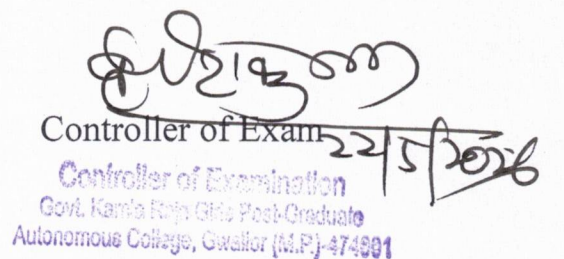 Controller of Exam
22/5/2026
Controller of Examination
Govt. Kamla Raja Girls Post-Graduate
Autonomous College, Gwalior (M.P.)-474001